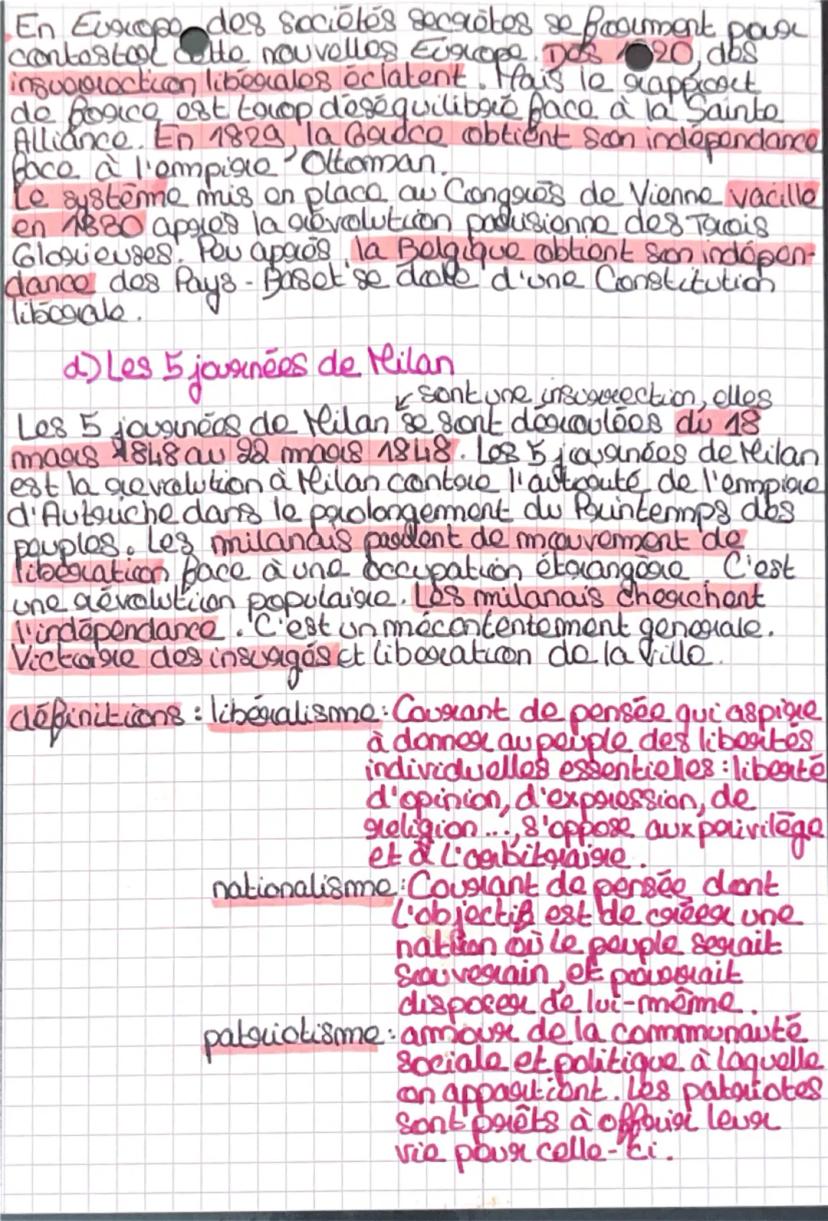 En Europe des sociétés secrètes se forment pour
contester cette nouvelles Europe. Dès 1820, des
insurrection libérales éclatent. Mais le rapport
de force est trop déséquilibré face à la Sainte
Alliance. En 1829, la Grèce obtient son indépendance
face à l'empire Ottoman.
Le système mis en place au Congrès de Vienne vacille
en 1830 après la révolution parisienne des Trois
Glorieuses. Peu après, la Belgique obtient son indépen-
dance des Pays-Bas et se dote d'une Constitution
libérale.
d) Les 5 journées de Milan
↙ sont une insurrection, elles
Les 5 journées de Milan se sont déroulées du 18
mars 1848 au 22 mars 1848. Les 5 journées de Milan
est la revolution à Milan contre l'autorité de l'empire
d'Autriche dans le prolongement du Printemps des
peuples. Les milanais parlent de mouvement de
libération face à une occupation étrangère C'est
une révolution populaire. Les milanais cherchent
l'indépendance. C'est un mécontentement generale.
Victoire des insurgés et liberation de la ville.
définitions : libéralisme : Courant de pensée qui aspire
à donner au peuple des libertés
individuelles essentielles : liberté
d'opinion, d'expression, de
religion..., s'oppose aux privilège
et à l'arbitraire.
nationalisme : Courant de pensée dont
l'objectif est de créer une
nation où le peuple serait
souverain, et pourrait
disposer de lui-même.
patriotisme : amour de la communauté
sociale et politique à laquelle
on appartient. Les patriotes
sont prêts à offrir leur
vie pour celle-ci.